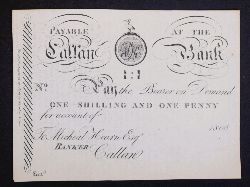 PAYABLE AT THE
Callan Bank
No. I Pay the Bearer on Demand
ONE SHILLING AND ONE PENNY
for account of
To Micheal Hearn Esqr.
BANKER
Callan
Entd.